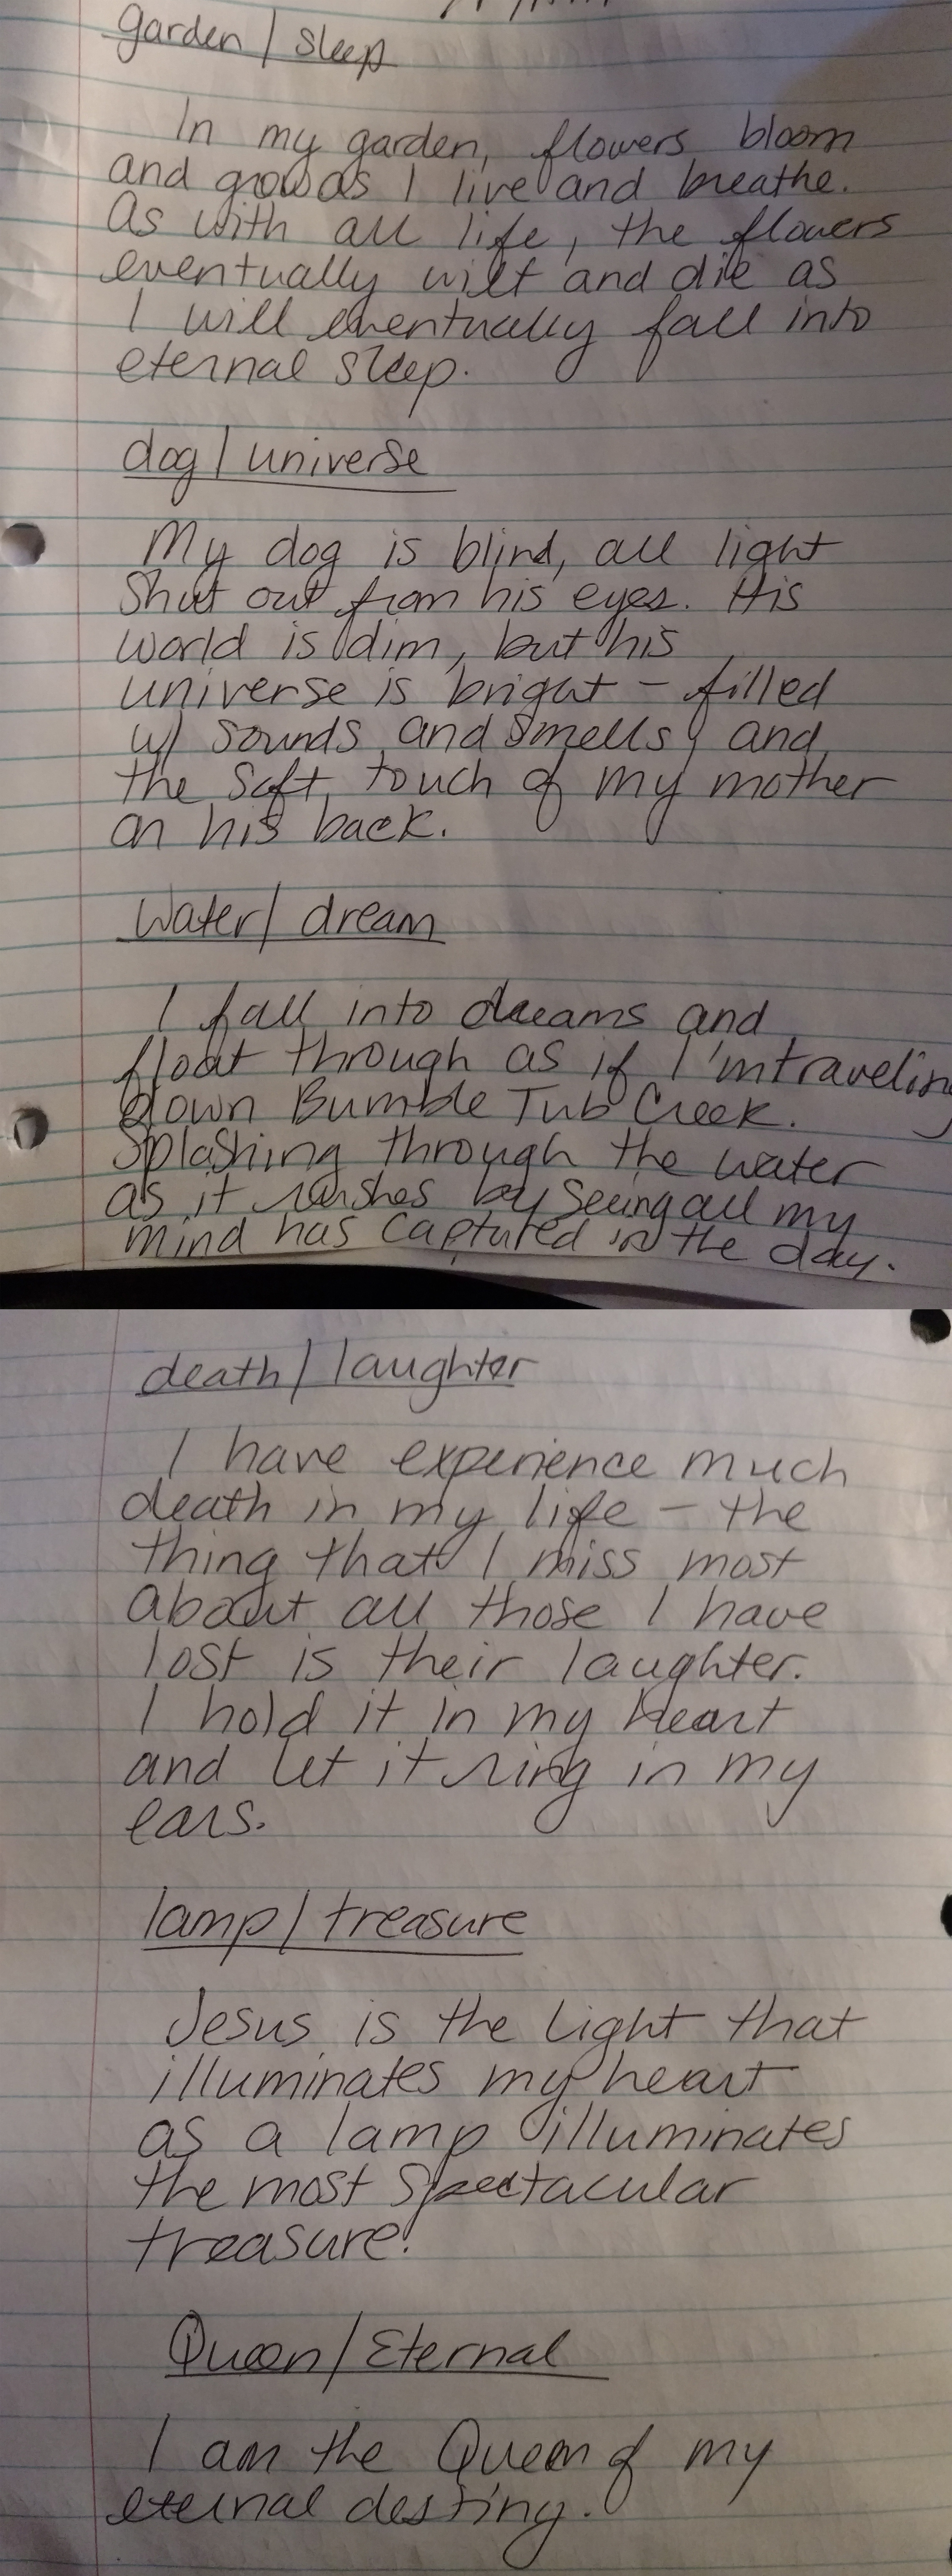 garden / sleep
In my garden, flowers bloom
and grow as I live and breathe.
As with all life, the flowers
eventually wilt and die as
I will eventually fall into
eternal sleep.
dog / universe
My dog is blind, all light
shut out from his eyes. His
world is dim, but his
universe is bright - filled
w/ sounds and smells, and
the soft touch of my mother
on his back.
Water / dream
I fall into dreams and
float through as if I'm traveling
down Bumble Tub Creek.
Splashing through the water
as it rushes by seeing all my
mind has captured in the day.
death / laughter
I have experience much
death in my life - the
thing that I miss most
about all those I have
lost is their laughter.
I hold it in my heart
and let it ring in my
ears.
lamp / treasure
Jesus is the light that
illuminates my heart
as a lamp illuminates
the most spectacular
treasure!
Queen / Eternal
I am the Queen of my
eternal destiny.